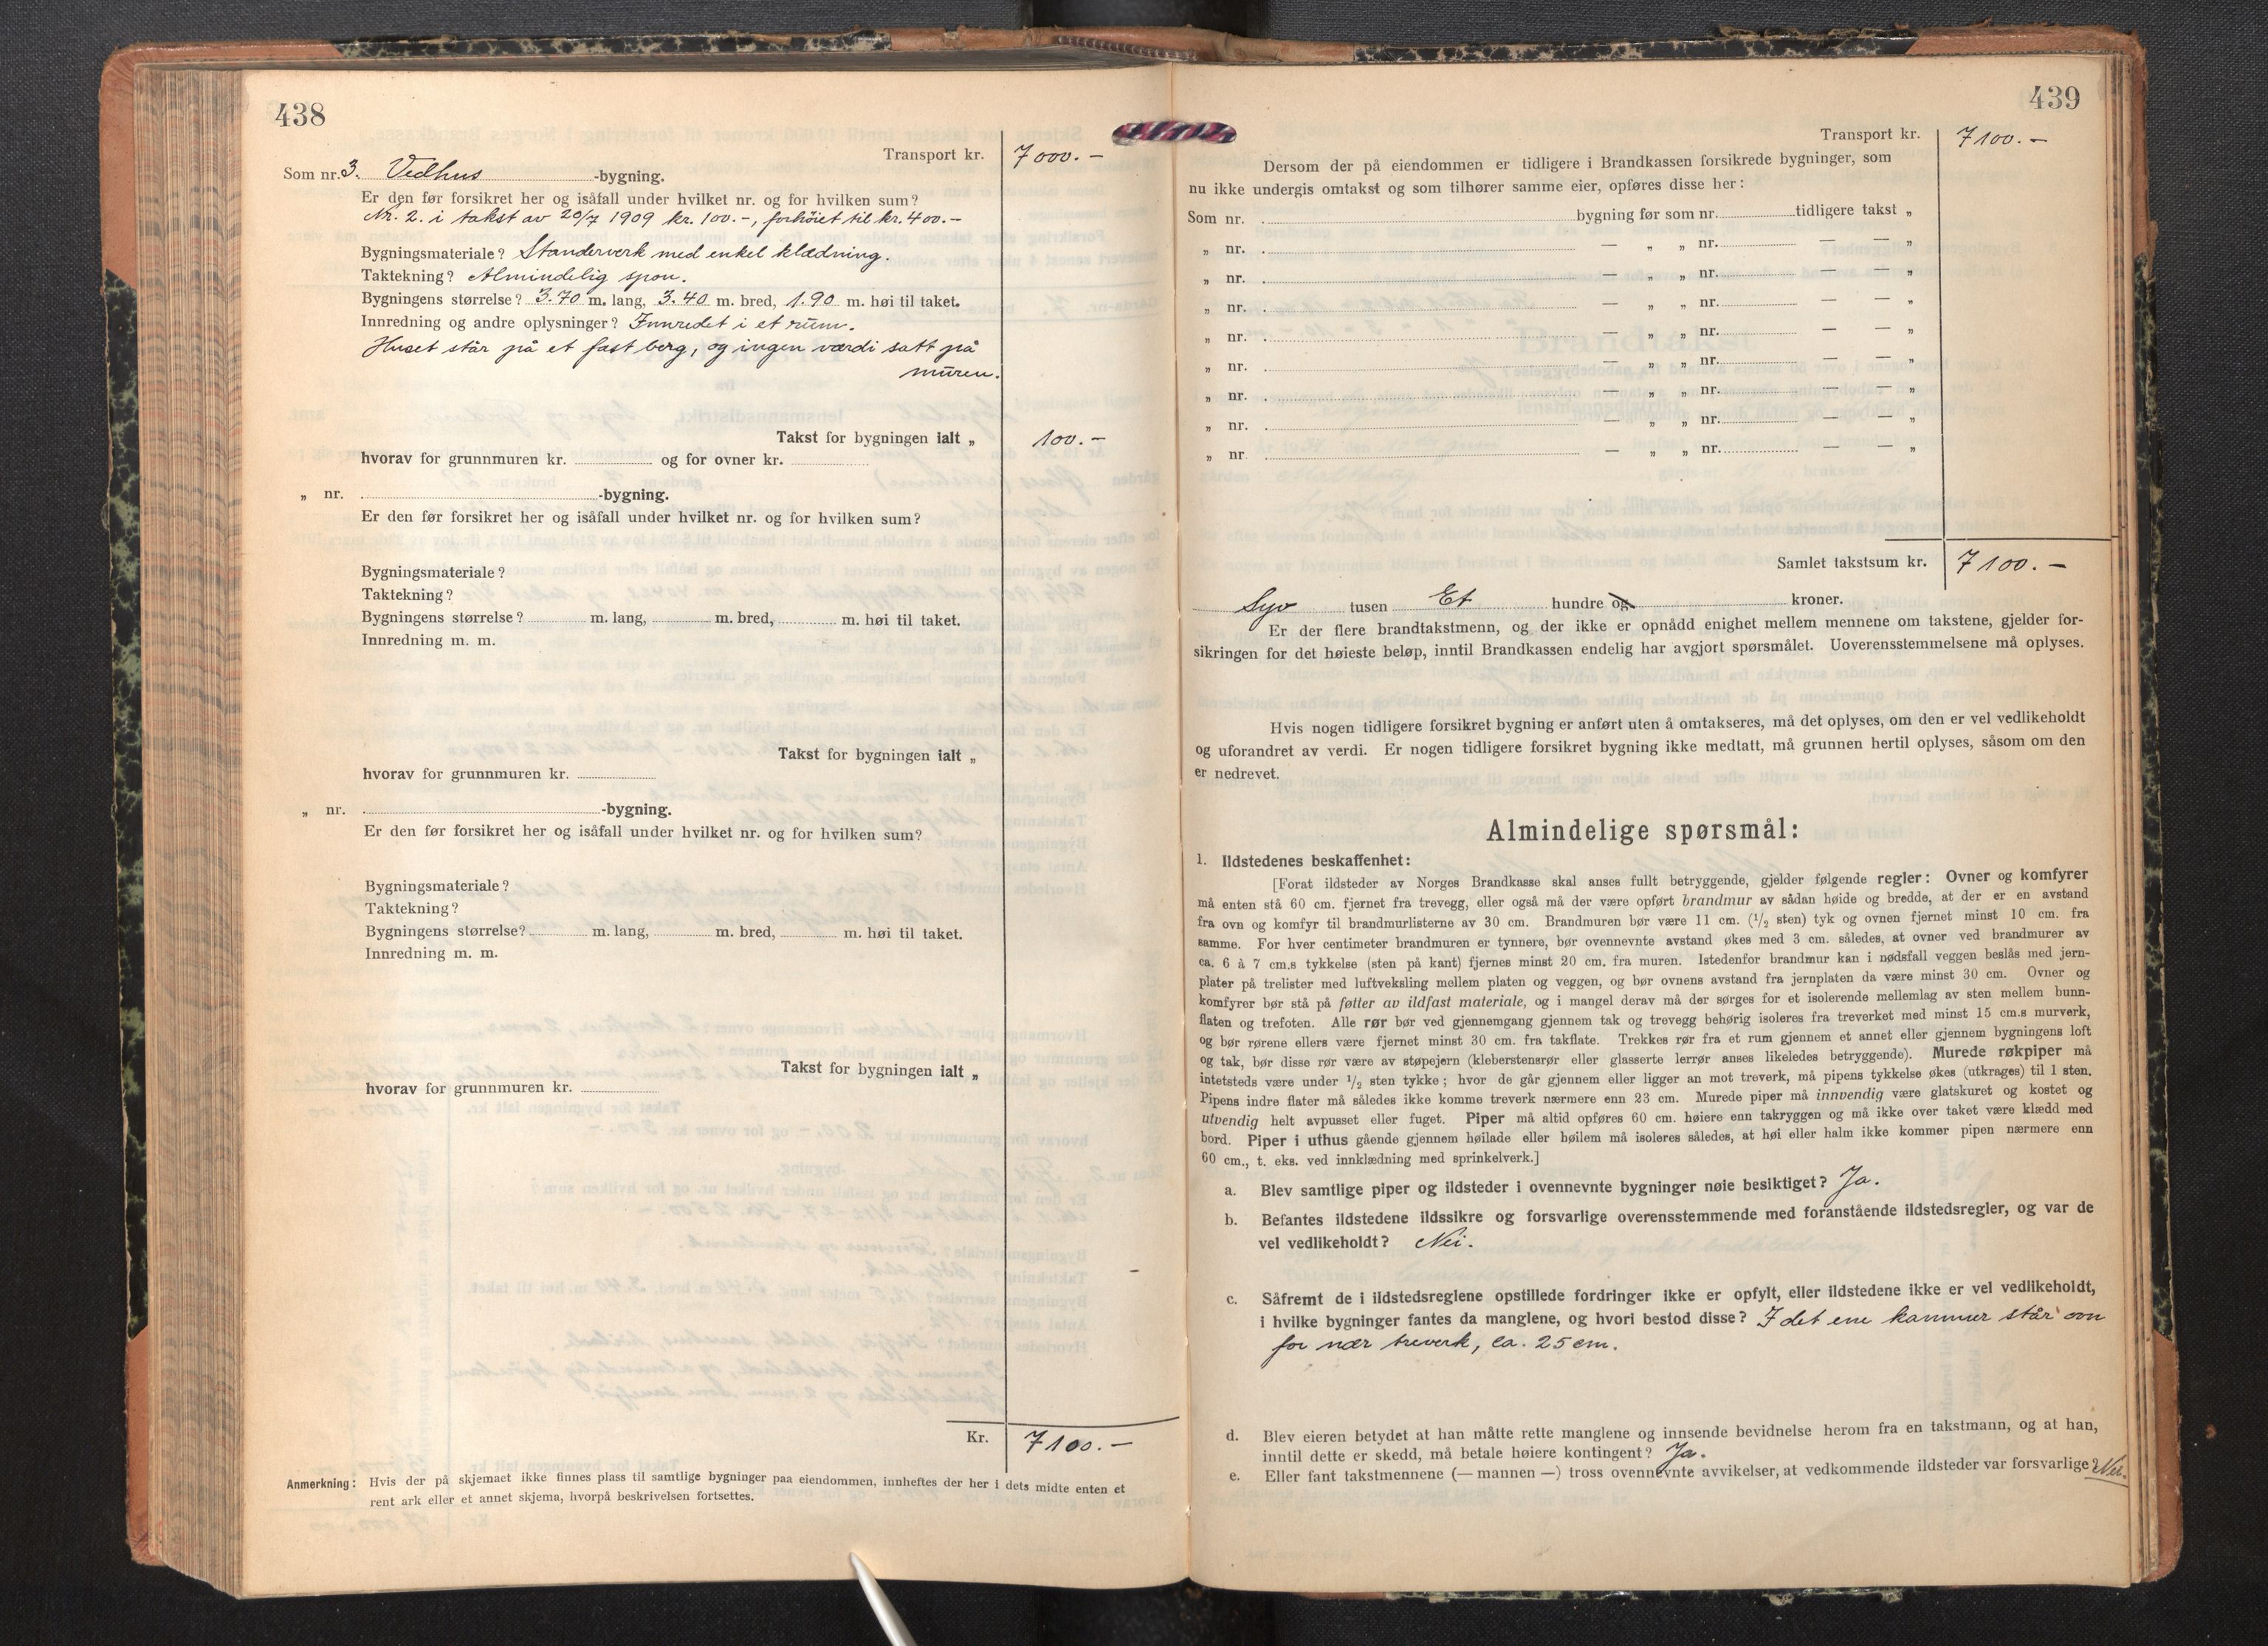 438
Transport kr. 7000.-
Som nr. 3. Vedhus -bygning.
Er den før forsikret her og isåfall under hvilket nr. og for hvilken sum?
Nr. 2. i takst av 20/7 1909 kr. 100.-, forhöiet til kr. 400.-
Bygningsmateriale? Standerverk med enkel klædning.
Taktekning? Almindelig spon.
Bygningens størrelse? 3.70 m. lang, 3.40 m. bred, 1.90 m. høi til taket.
Innredning og andre oplysninger? Innredet i et rum.
Huset står på et fast berg, og ingen værdi satt på
muren.
Takst for bygningen ialt „ 100.-
hvorav for grunnmuren kr. og for ovner kr.
„ nr. -bygning.
Er den før forsikret her og isåfall under hvilket nr. og for hvilken sum?
Bygningsmateriale?
Taktekning?
Bygningens størrelse? m. lang, m. bred, m. høi til taket.
Innredning m. m.
Takst for bygningen ialt „
hvorav for grunnmuren kr.
„ nr. -bygning.
Er den før forsikret her og isåfall under hvilket nr. og for hvilken sum?
Bygningsmateriale?
Taktekning?
Bygningens størrelse? m. lang, m. bred, m. høi til taket.
Innredning m. m.
Takst for bygningen ialt „
hvorav for grunnmuren kr.
Kr. 7100.-
Anmerkning: Hvis der på skjemaet ikke finnes plass til samtlige bygninger paa eiendommen, innheftes der her i dets midte enten et
rent ark eller et annet skjema, hvorpå beskrivelsen fortsettes.
439
Transport kr. 7100.-
Dersom der på eiendommen er tidligere i Brandkassen forsikrede bygninger, som
nu ikke undergis omtakst og som tilhører samme eier, opføres disse her:
Som nr. bygning før som nr. tidligere takst „
„ nr. — „ „ nr. — — „
„ nr. — „ „ nr. — — „
„ nr. — „ „ nr. — — „
„ nr. — „ „ nr. — — „
„ nr. — „ „ nr. — — „
„ nr. — „ „ nr. — — „
„ nr. — „ „ nr. — — „
„ nr. — „ „ nr. — — „
Samlet takstsum kr. 7100.-
Syv tusen Et hundre og kroner.
Er der flere brandtakstmenn, og der ikke er opnådd enighet mellem mennene om takstene, gjelder for-
sikringen for det høieste beløp, inntil Brandkassen endelig har avgjort spørsmålet. Uoverensstemmelsene må oplyses.
Hvis nogen tidligere forsikret bygning er anført uten å omtakseres, må det oplyses, om den er vel vedlikeholdt
og uforandret av verdi. Er nogen tidligere forsikret bygning ikke medtatt, må grunnen hertil oplyses, såsom om den
er nedrevet.
Almindelige spørsmål:
1. Ildstedenes beskaffenhet:
[Forat ildsteder av Norges Brandkasse skal anses fullt betryggende, gjelder følgende regler: Ovner og komfyrer
må enten stå 60 cm. fjernet fra trevegg, eller også må der være opført brandmur av sådan høide og bredde, at der er en avstand
fra ovn og komfyr til brandmurlisterne av 30 cm. Brandmuren bør være 11 cm. (1/2 sten) tyk og ovnen fjernet minst 10 cm. fra
samme. For hver centimeter brandmuren er tynnere, bør ovennevnte avstand økes med 3 cm. således, at ovner ved brandmurer av
ca. 6 à 7 cm.s tykkelse (sten på kant) fjernes minst 20 cm. fra muren. Istedenfor brandmur kan i nødsfall veggen beslås med jern-
plater på trelister med luftveksling mellem platen og veggen, og bør ovnens avstand fra jernplaten da være minst 30 cm. Ovner og
komfyrer bør stå på føtter av ildfast materiale, og i mangel derav må der sørges for et isolerende mellemlag av sten mellem bunn-
flaten og trefoten. Alle rør bør ved gjennemgang gjennem tak og trevegg behørig isoleres fra treverket med minst 15 cm.s murverk,
og bør rørene ellers være fjernet minst 30 cm. fra takflate. Trekkes rør fra et rum gjennem et annet eller gjennem bygningens loft
og tak, bør disse rør være av støpejern (kleberstensrør eller glasserte lerrør anses likeledes betryggende). Murede røkpiper må
intetsteds være under 1/2 sten tykke; hvor de går gjennem eller ligger an mot treverk, må pipens tykkelse økes (utkrages) til 1 sten.
Pipens indre flater må således ikke komme treverk nærmere enn 23 cm. Murede piper må innvendig være glatskuret og kostet og
utvendig helt avpusset eller fuget. Piper må altid opføres 60 cm. høiere enn takryggen og må ikke over taket være klædd med
bord. Piper i uthus gående gjennem høilade eller høilem må isoleres således, at høi eller halm ikke kommer pipen nærmere enn
60 cm., t. eks. ved innklædning med sprinkelverk.]
a. Blev samtlige piper og ildsteder i ovennevnte bygninger nøie besiktiget? Ja.
b. Befantes ildstedene ildssikre og forsvarlige overensstemmende med foranstående ildstedsregler, og var de
vel vedlikeholdt? Nei.
c. Såfremt de i ildstedsreglene opstillede fordringer ikke er opfylt, eller ildstedene ikke er vel vedlikeholdt,
i hvilke bygninger fantes da manglene, og hvori bestod disse? I det ene kammer står ovn
for nær treverk, ca. 25 cm.
d. Blev eieren betydet at han måtte rette manglene og innsende bevidnelse herom fra en takstmann, og at han,
inntil dette er skedd, må betale høiere kontingent? Ja.
e. Eller fant takstmennene (— mannen —) tross ovennevnte avvikelser, at vedkommende ildsteder var forsvarlige? Nei.